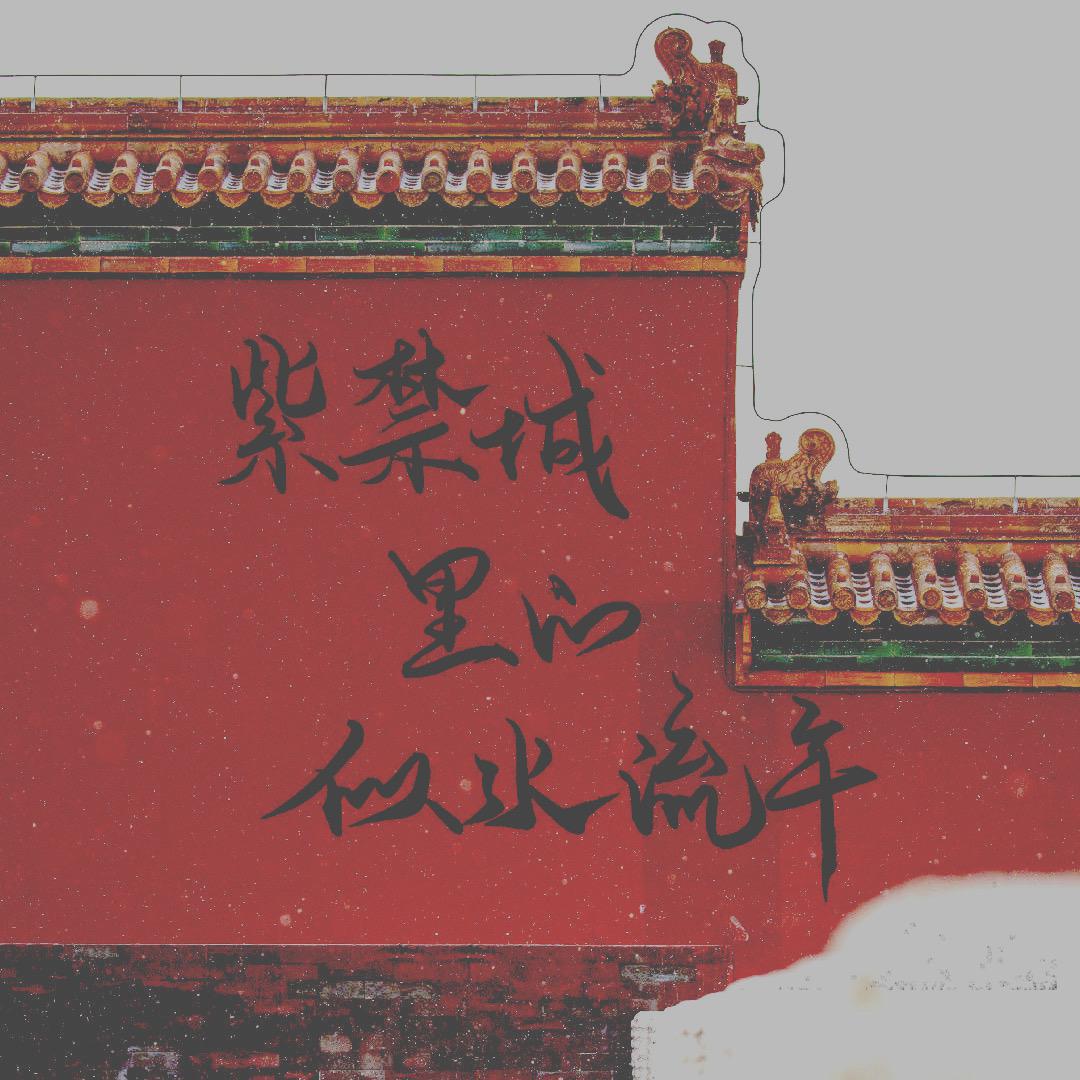 紫禁城
里的
似水流年